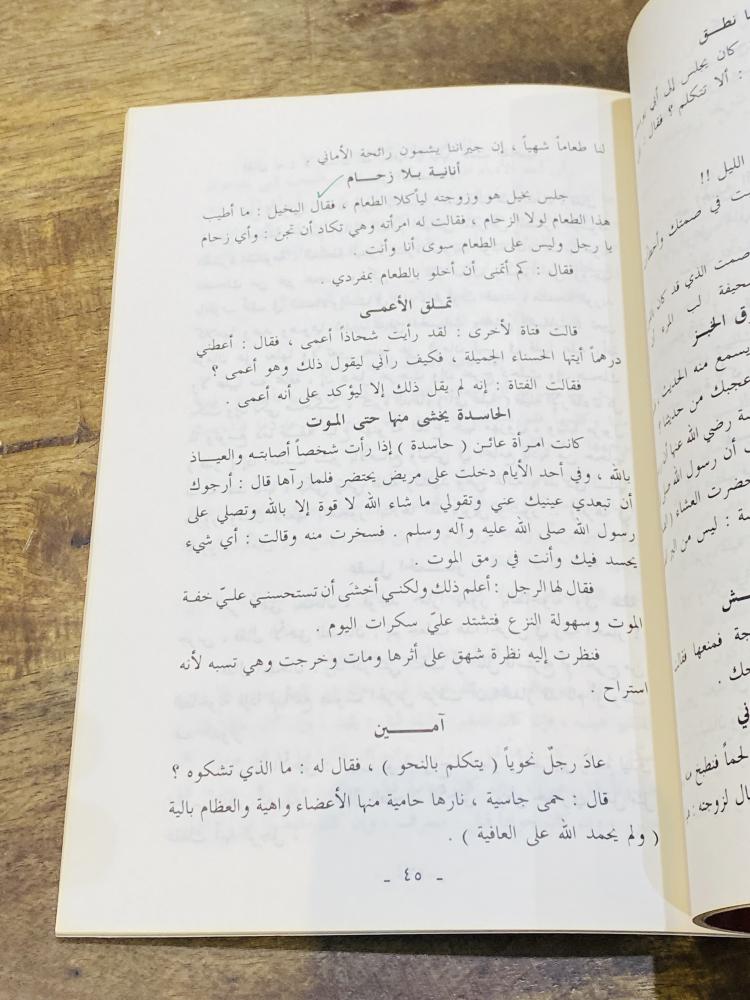 لنا طعاماً شهياً ، إن جيراننا يشمون رائحة الأماني .
أنانية بلا زحـــام
جلس بخيل هو وزوجته ليأكلا الطعام ، فقال البخيل : ما أطيب
هذا الطعام لولا الزحام ، فقالت له امرأته وهي تكاد أن تجن : وأي زحام
يا رجل وليس على الطعام سوى أنا وأنت .
فقال : كم أتمنى أن أخلو بالطعام بمفردي .
تملق الأعمـى
قالت فتاة لأخرى : لقد رأيت شحاذاً أعمى ، فقال : أعطني
درهماً أيتها الحسناء الجميلة ، فكيف رآني ليقول ذلك وهو أعمى ؟
فقالت الفتاة : إنه لم يقل ذلك إلا ليؤكد على أنه أعمى .
الحاسدة يخشى منها حتى الموت
كانت امرأة عائـن ( حاسدة ) إذا رأت شخصاً أصابتـه والعيـاذ
بالله ، وفي أحد الأيام دخلت على مريض يحتضر فلما رآها قال : أرجوك
أن تبعدي عينيك عني وتقولي ما شاء الله لا قوة إلا بالله وتصلي على
رسول الله صلى الله عليه وآله وسلم . فسخرت منه وقالت : أي شيء
يحسد فيك وأنت في رمق الموت .
فقال لها الرجل : أعلم ذلك ولكني أخشَى أن تستحسني عليّ خفـة
الموت وسهولة النزع فتشتد عليّ سكرات اليوم .
فنظرت إليه نظرة شهق على أثرها ومات وخرجت وهي تسبه لأنه
استراح .
آمـــــين
عادَ رجلٌ نحوياً ( يتكلم بالنحو ) ، فقال له : ما الذي تشكوه ؟
قال : حمى جاسية ، نارها حامية منها الأعضاء واهية والعظام بالية
( ولم يحمد الله على العافية ) .
- ٤٥ -
ا نطـق
كان يجلس إلى أبي
: ألا تتكلم ؟ فقال :
الليل !!
ت في صمتك وأخطأ
صمت الذي قد كان
حيفة لب المرء
ق الخبـز
يسمع منه الحديث
عجبك من حديثنا
ـة رضي الله عنها
أن رسول الله
حضرت العشاء
ـة : ليس من البر
ـش
جة فمنعها فقالت
حك .
ني
لحماً فنطبخ من
ال لزوجته :